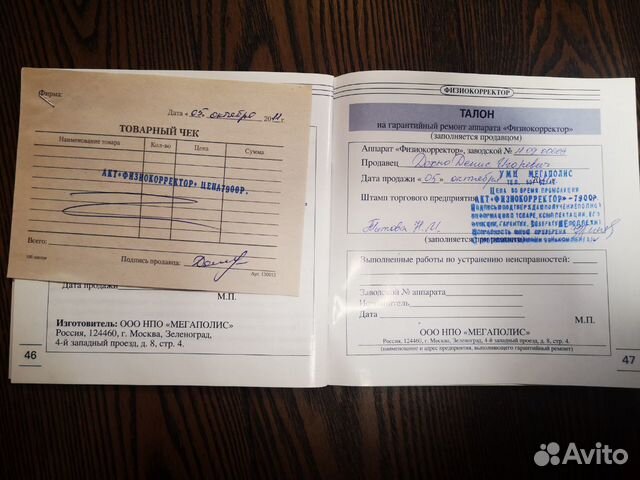 Фирма:
Дата «05» октября 2011 г.
ТОВАРНЫЙ ЧЕК
Наименование товара Кол-во Цена Сумма
АКТ«ФИЗИОКОРРЕКТОР» ЦЕНА7900Р.
Всего:
Подпись продавца:
100 листов Арт. 130013
М.П.
Изготовитель: ООО НПО «МЕГАПОЛИС»
Россия, 124460, г. Москва, Зеленоград,
4-й западный проезд, д. 8, стр. 4.
46
ФИЗИОКОРРЕКТОР
ТАЛОН
на гарантийный ремонт аппарата «Физиокорректор»
(заполняется продавцом)
Аппарат «Физиокорректор», заводской №
Продавец Денис Игоревич
УМЦ МЕГАПОЛИС
Дата продажи «05» октября
ЦЕНА ВО ВРЕМЯ ПРОМОАКЦИИ
Штамп торгового предприятия АКТ«ФИЗИОКОРРЕКТОР»-7900Р
Титова Н.И.
Выполненные работы по устранению неисправностей:
Заводской № аппарата
Исполнитель
Дата
М.П.
ООО НПО «МЕГАПОЛИС»
Россия, 124460, г. Москва, Зеленоград, 4-й западный проезд, д. 8, стр. 4.
(наименование и адрес предприятия, выполняющего гарантийный ремонт)
47
Avito